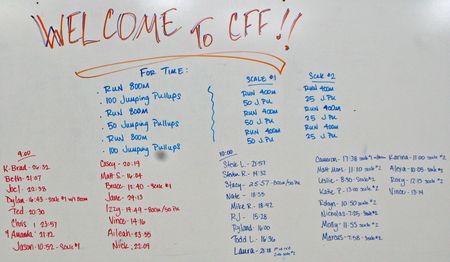 WELCOME TO CFF!!
FOR TIME:
· RUN 800M
· 100 JUMPING PULLUPS
· RUN 800M
· 50 JUMPING PULLUPS
· RUN 800M
· 100 JUMPING PULLUPS
SCALE #1
RUN 400M
50 J. PU
RUN 400M
50 J. PU
RUN 400M
50 J. PU
SCALE #2
RUN 400M
25 J. PU
RUN 400M
25 J. PU
RUN 400M
25 J. PU
9:00
K-Brad - 26:32
Beth - 21:07
Joel - 22:38
Dylan - 16:45
Ted 20:30
Chris
Amanda - 21:12
Jason - 10:52 - Scale #1
Casey - 20:19
Matt S. - 18:24
Bruce - 15:40 Scale #1
Jane - 29:13
Izzy - 19:49 - 800M/50 PU
Vince - 14:16
Aileah - 23:55
Nick - 22:09
10:00
Steve L - 21:57
Steven R. - 19:32
Stacy - 25:57 - 800M/50 PU
Nate - 18:35
Mike R. - 18:42
RJ - 15:28
Ryland 16:00
Todd L - 16:36
Laura - 21:18
Cameron - 17:38 Scale #1
Matt Mars 11:10 Scale #2
Leslie - 8:50 Scale #2
Katie P. 13:00 Scale #2
Robyn - 10:50 Scale #2
Nicholas - 7:25 Scale #2
Molly - 11:55 Scale #2
Marcus - 7:58 Scale #2
Karina - 11:00 Scale #2
Alexa - 10:05 Scale #2
Rory - 12:13 Scale #2
Vince - 13:14